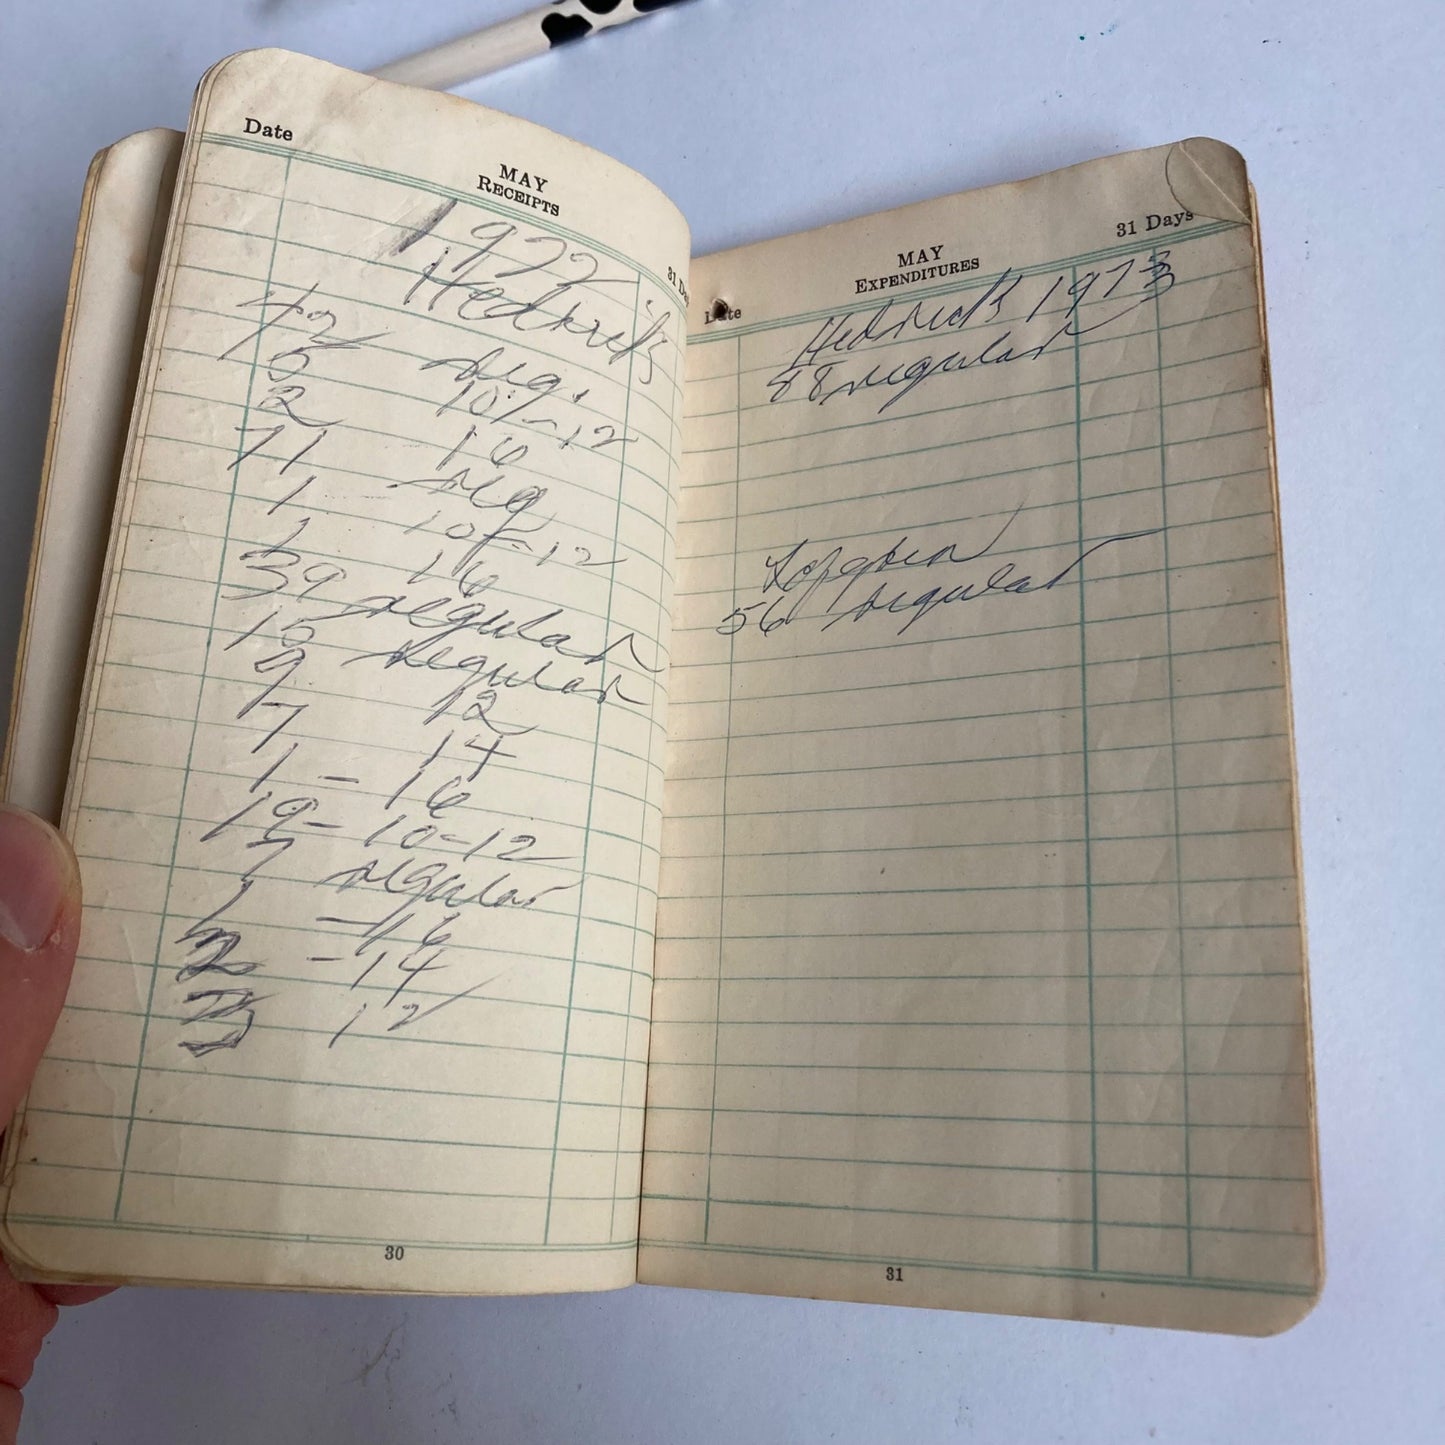 Date
MAY
RECEIPTS
31 Da
1972
Hedrick's
42 reg.
5 10-12
2 16
71 reg
1 10-12
1 16
39 regular
15 regular
9 12
7 14
1 - 16
19 - 10-12
7 regular
1 - 16
2 - 14
3 12
30
Date
MAY
EXPENDITURES
31 Days
Hedrick 1973
88 regular
56 regular
31